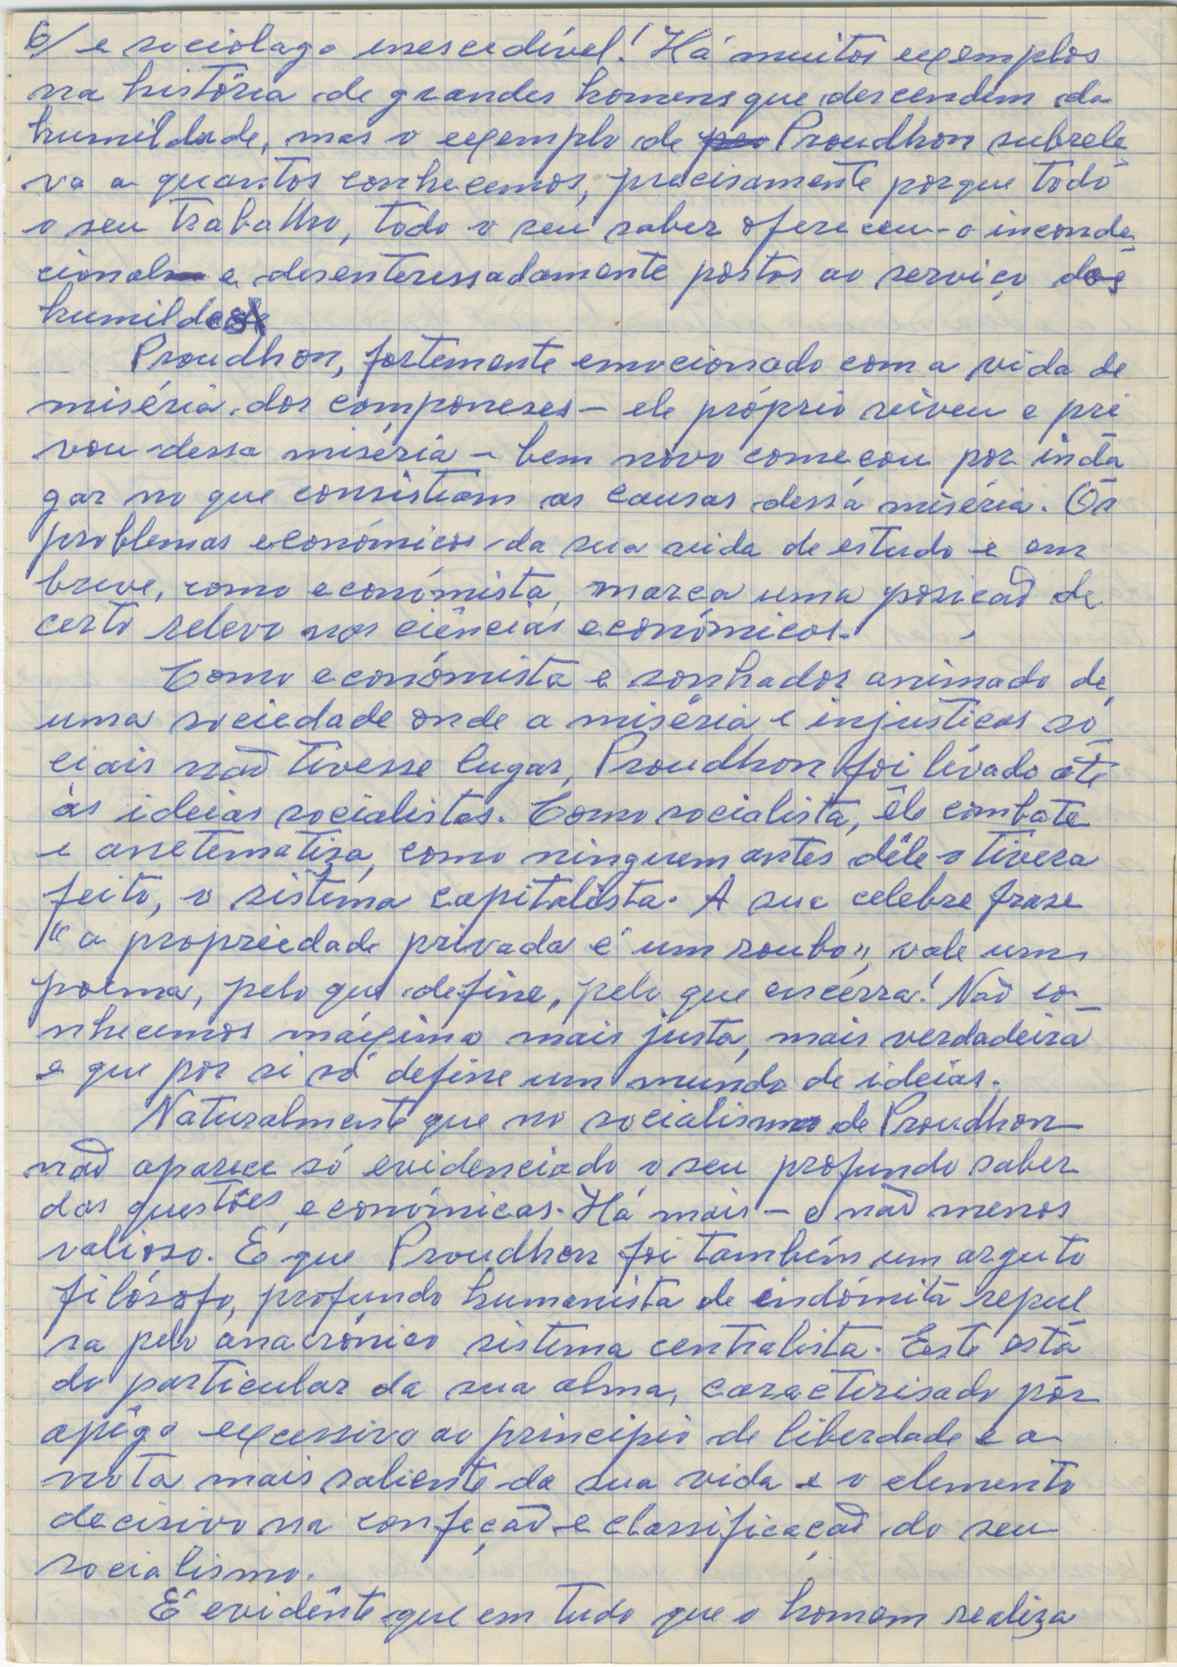 6/ e sociologo inescedível! Há muitos exemplos
na história de grandes homens que descendem da
humildade, mas o exemplo de Proudhon subrele
va a quantos conhecemos, precisamente porque todo
o seu trabalho, todo o seu saber ofereceu-o incondi
cional e desenteressadamente postos ao serviço dos
humildes
Proudhon, fortemente emocionado com a vida de
miséria dos componeses – ele próprio viveu e pri
vou dessa miséria – bem novo começou por inda
gar no que consistiam as causas dessa miséria. Os
problemas económicos da sua vida de estudo e em
breve, como económista, marca uma posição de
certo relevo nas ciências económicas.
Como económista e sonhador animado de
uma sociedade onde a miséria e injustiças so
ciais não tivesse lugar, Proudhon foi lévado até
às ideias socialistas. Como socialista, êle combate
e anetematisa, como ninguem antes dêle o tivera
feito, o sistema capitalista. A sua celebre frase
"a propriedade privada é um roubo", vale um
poema, pelo que define, pelo que encerra! Não co
nhecemos máxima mais justa, mais verdadeira
e que por si só define um mundo de ideias.
Naturalmente que no socialismo de Proudhon
não aparece só evidenciado o seu profundo saber
das questões económicas. Há mais – e não menos
valioso. É que Proudhon foi também um arguto
filósofo, profundo humanista de indómita repul
sa pelo anacrónico sistema centralista. Este esta
do particular da sua alma, caracterisado por
apêgo excessivo ao principio de liberdade é a
nota mais saliente da sua vida e o elemento
decisivo na confeção e classificação do seu
socialismo.
É evidênte que em tudo que o homem realiza